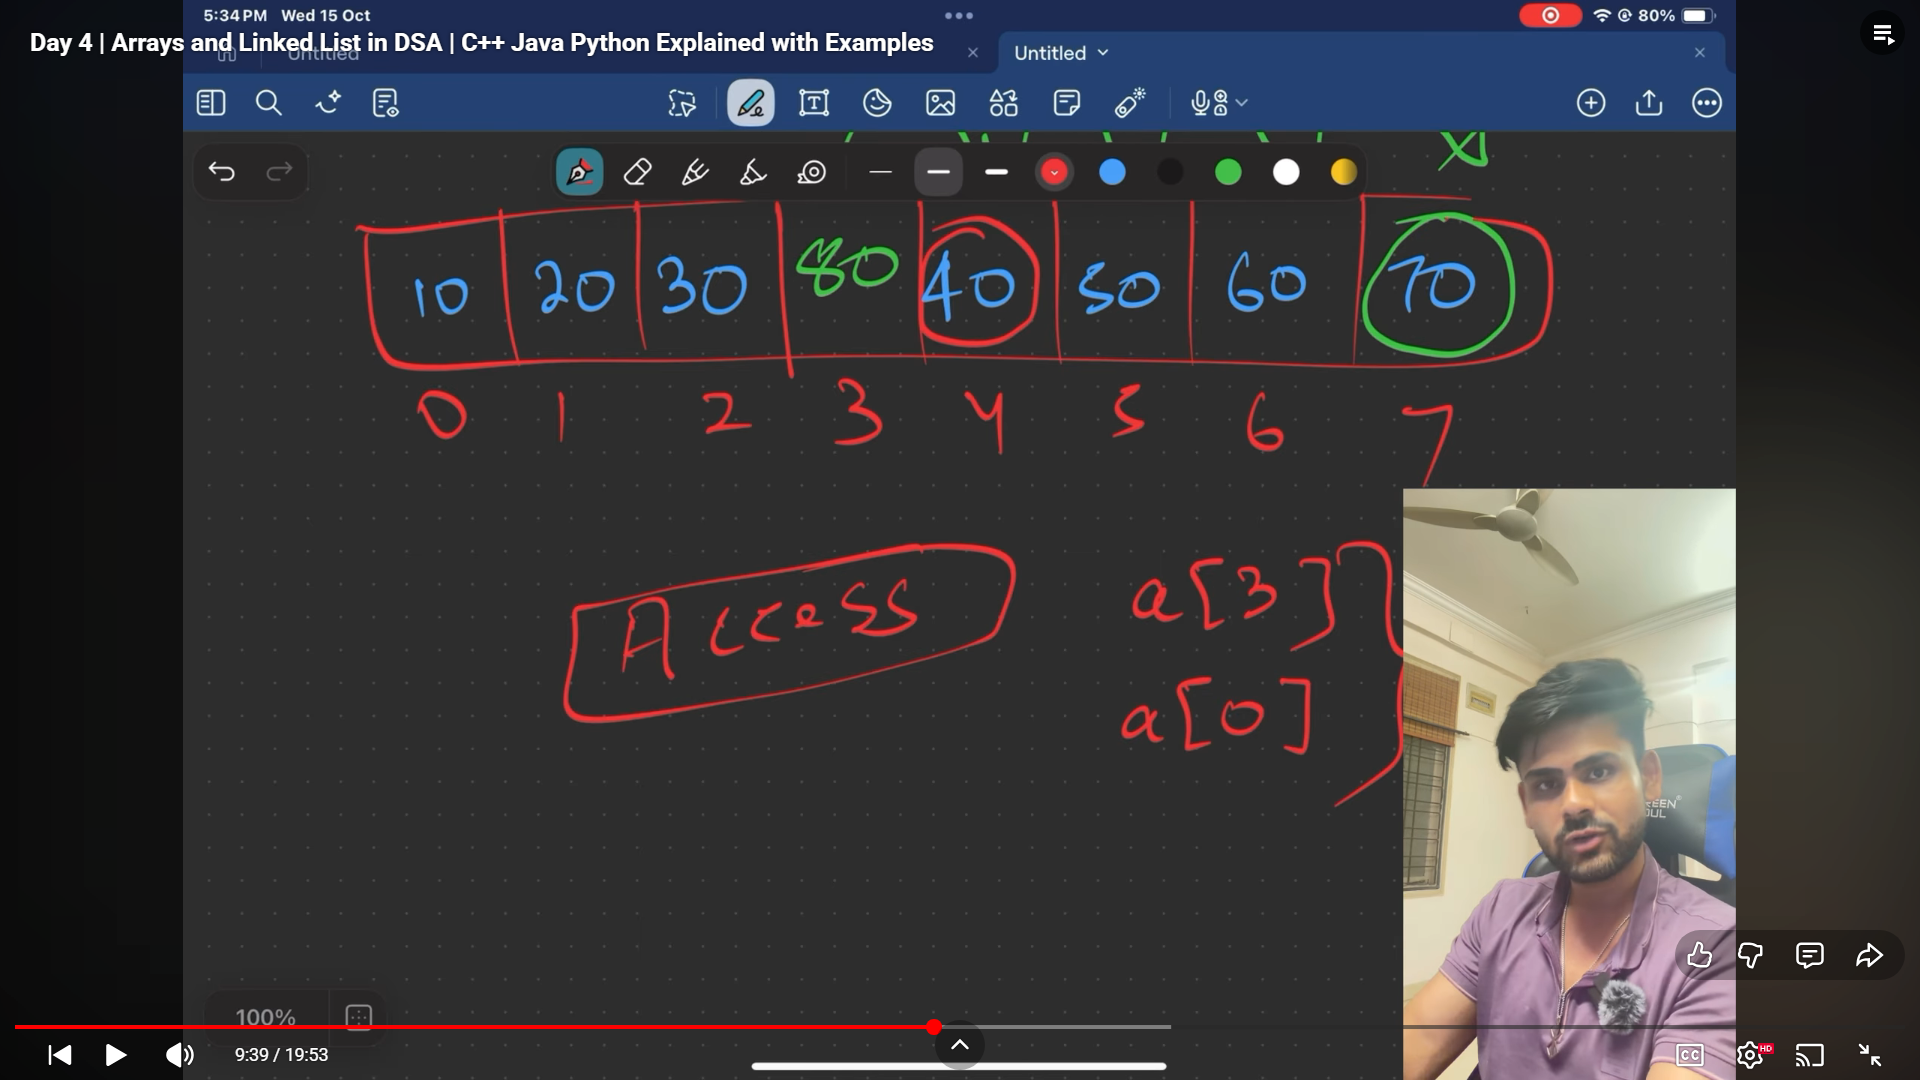 5:34 PM Wed 15 Oct
80%
Day 4 | Arrays and Linked List in DSA | C++ Java Python Explained with Examples
Untitled
Untitled
10 20 30 80 40 50 60 70
0 1 2 3 4 5 6 7
Access
a[3]
a[0]
100%
9:39 / 19:53
CC
HD